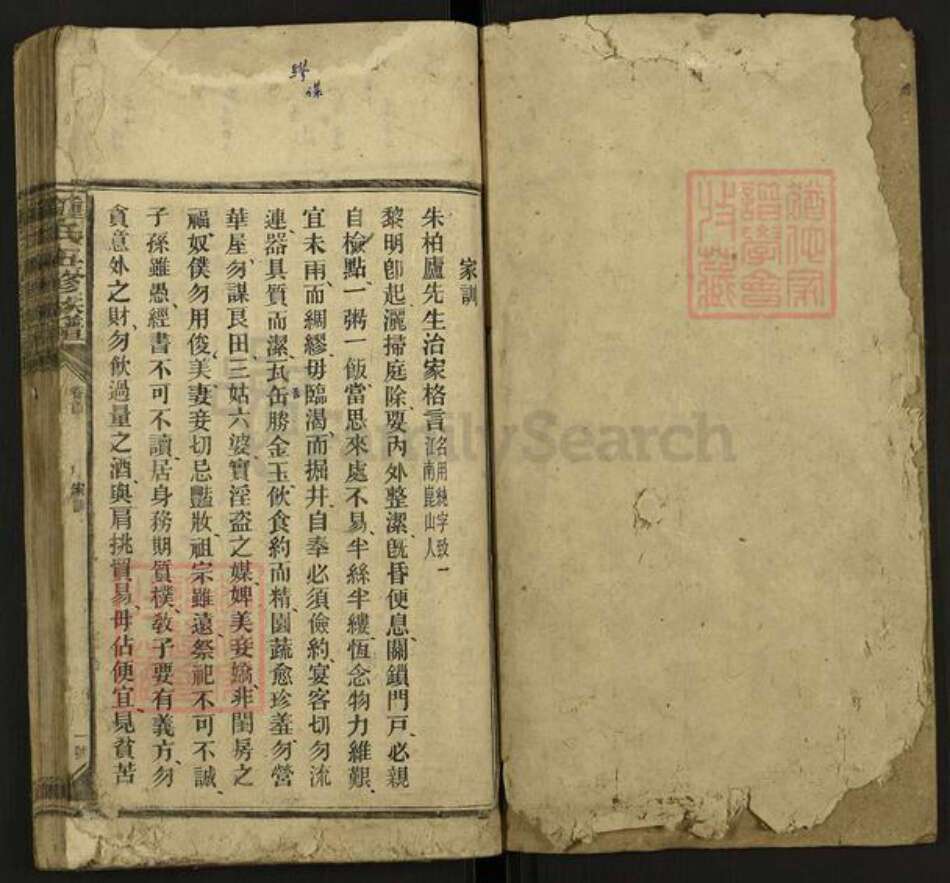 家訓
朱柏廬先生治家格言 名用純字致一 江南崑山人
黎明卽起、灑掃庭除、要內外整潔、旣昏便息、關鎖門戶、必親
自檢點、一粥一飯、當思來處不易、半絲半縷、恆念物力維艱、
宜未雨、而綢繆、毋臨渴、而掘井、自奉必須儉約、宴客切勿流
連、器具質而潔、瓦缶勝金玉、飲食約而精、園蔬愈珍羞、勿營
華屋、勿謀良田、三姑六婆、實淫盜之媒、婢美妾嬌、非閨房之
福、奴僕勿用俊美、妻妾切忌豔妝、祖宗雖遠、祭祀不可不誠、
子孫雖愚、經書不可不讀、居身務期質樸、敎子要有義方、勿
貪意外之財、勿飲過量之酒、與肩挑貿易、毋佔便宜、見貧苦
鍾氏五修族譜
卷首
家訓
一
繆
謀
猶他家譜學會收藏
FamilySearch